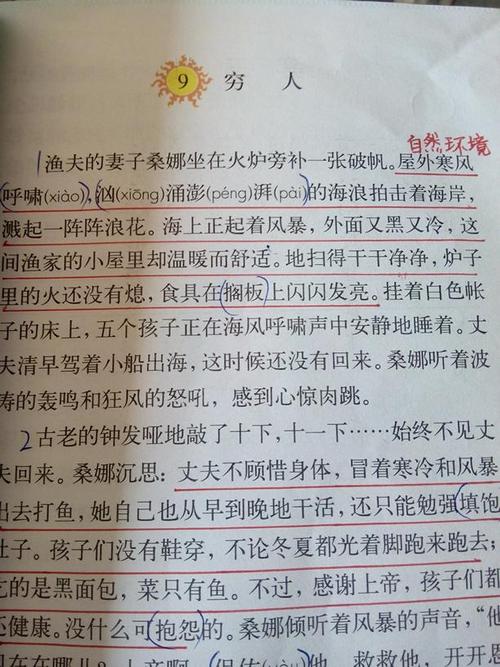 9 穷人
自然环境
1渔夫的妻子桑娜坐在火炉旁补一张破帆。屋外寒风
呼啸(xiào),汹(xiōng)涌澎(péng)湃(pài)的海浪拍击着海岸,
溅起一阵阵浪花。海上正起着风暴,外面又黑又冷,这
间渔家的小屋里却温暖而舒适。地扫得干干净净,炉子
里的火还没有熄,食具在搁板上闪闪发亮。挂着白色帐
子的床上,五个孩子正在海风呼啸声中安静地睡着。丈
夫清早驾着小船出海,这时候还没有回来。桑娜听着波
涛的轰鸣和狂风的怒吼,感到心惊肉跳。
2古老的钟发哑地敲了十下,十一下……始终不见丈
夫回来。桑娜沉思:丈夫不顾惜身体,冒着寒冷和风暴
出去打鱼,她自己也从早到晚地干活,还只能勉强填饱
肚子。孩子们没有鞋穿,不论冬夏都光着脚跑来跑去;
吃的是黑面包,菜只有鱼。不过,感谢上帝,孩子们都
还健康。没什么可抱怨的。桑娜倾听着风暴的声音,“他
现在在哪儿?上帝啊,保佑他,救救他,开开